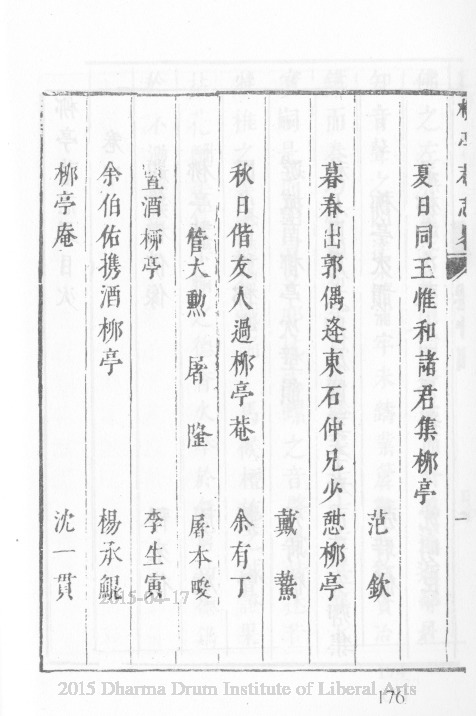 夏日同王惟和諸君集柳亭
范欽
暮春出郭偶逢東石仲兄少憇柳亭
戴鱀
秋日偕友人過柳亭菴 余有丁
管大勲 屠隆 屠本畯
置酒柳亭 李生寅
余伯佑携酒柳亭 楊承鯤
柳亭庵 沈一貫
一
2015-04-17
2015 Dharma Drum Institute of Liberal Arts
176